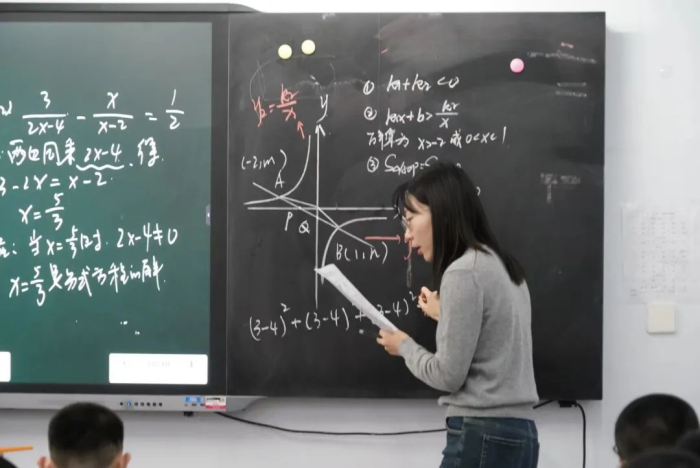 3/(2x-4) - x/(x-2) = 1/2
两边同乘 2x-4, 得
3-2x = x-2
x = 5/3
当x=5/3时, 2x-4≠0
x=5/3是分式方程的解
y₂=k₂/x
y
(-2,m)
A
P Q
B(1,n)
① k₁+k₂<0
② k₁x+b>k₂/x
x>-2 或 0<x<1
③
(3-4)²+(3-4)²+(3-4)²